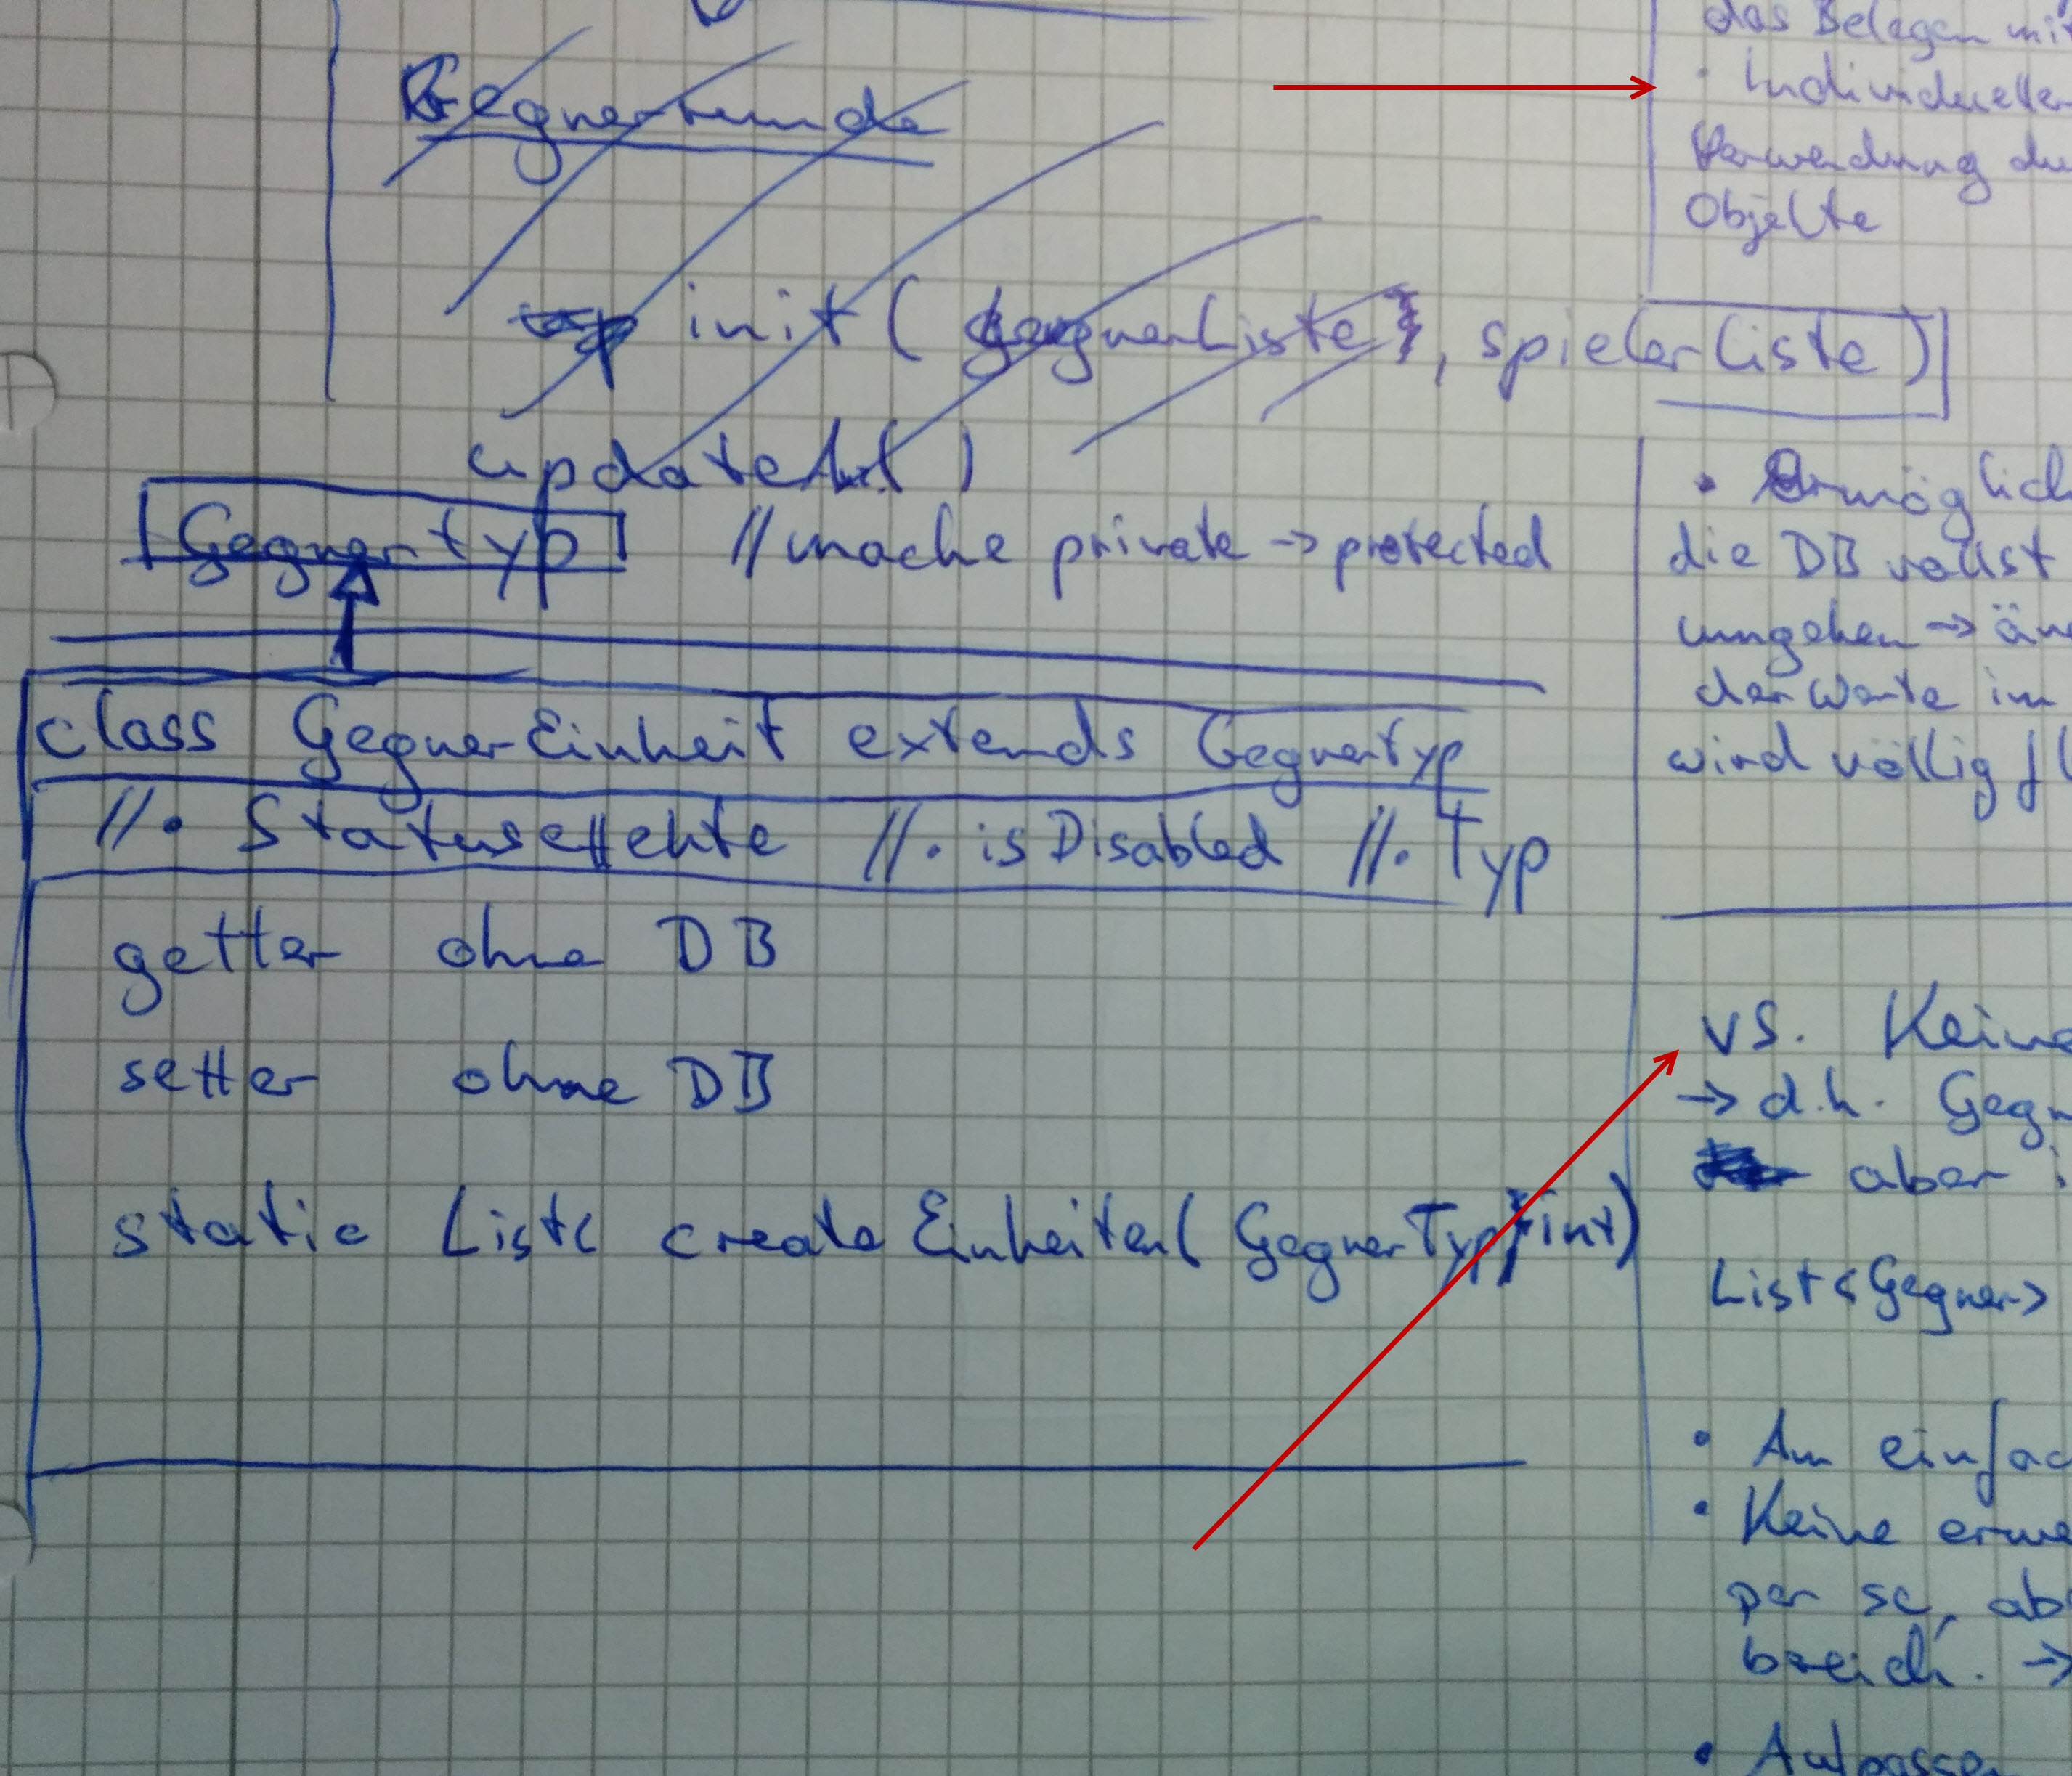 Gegnerrunde
init ( gegnerListe, spielerliste )
updateAt ( )
Gegnertyp //mache private -> protected
class GegnerEinheit extends Gegnertyp
//• Statuseffekte //• isDisabled //• Typ
getter ohne DB
setter ohne DB
static List< createEinheiten( GegnerTyp, int)
das Belegen mit
• Individueller
Verwendung du
Objekte
• Ermöglich
die DB vollst
umgehen -> än
der Werte im
wird völlig fl
vs. Keine
-> d.h. Gegn
aber i
List<Gegner>
• Am einfac
• Keine erwe
per se, ab
bereich. ->
• Aufpassen